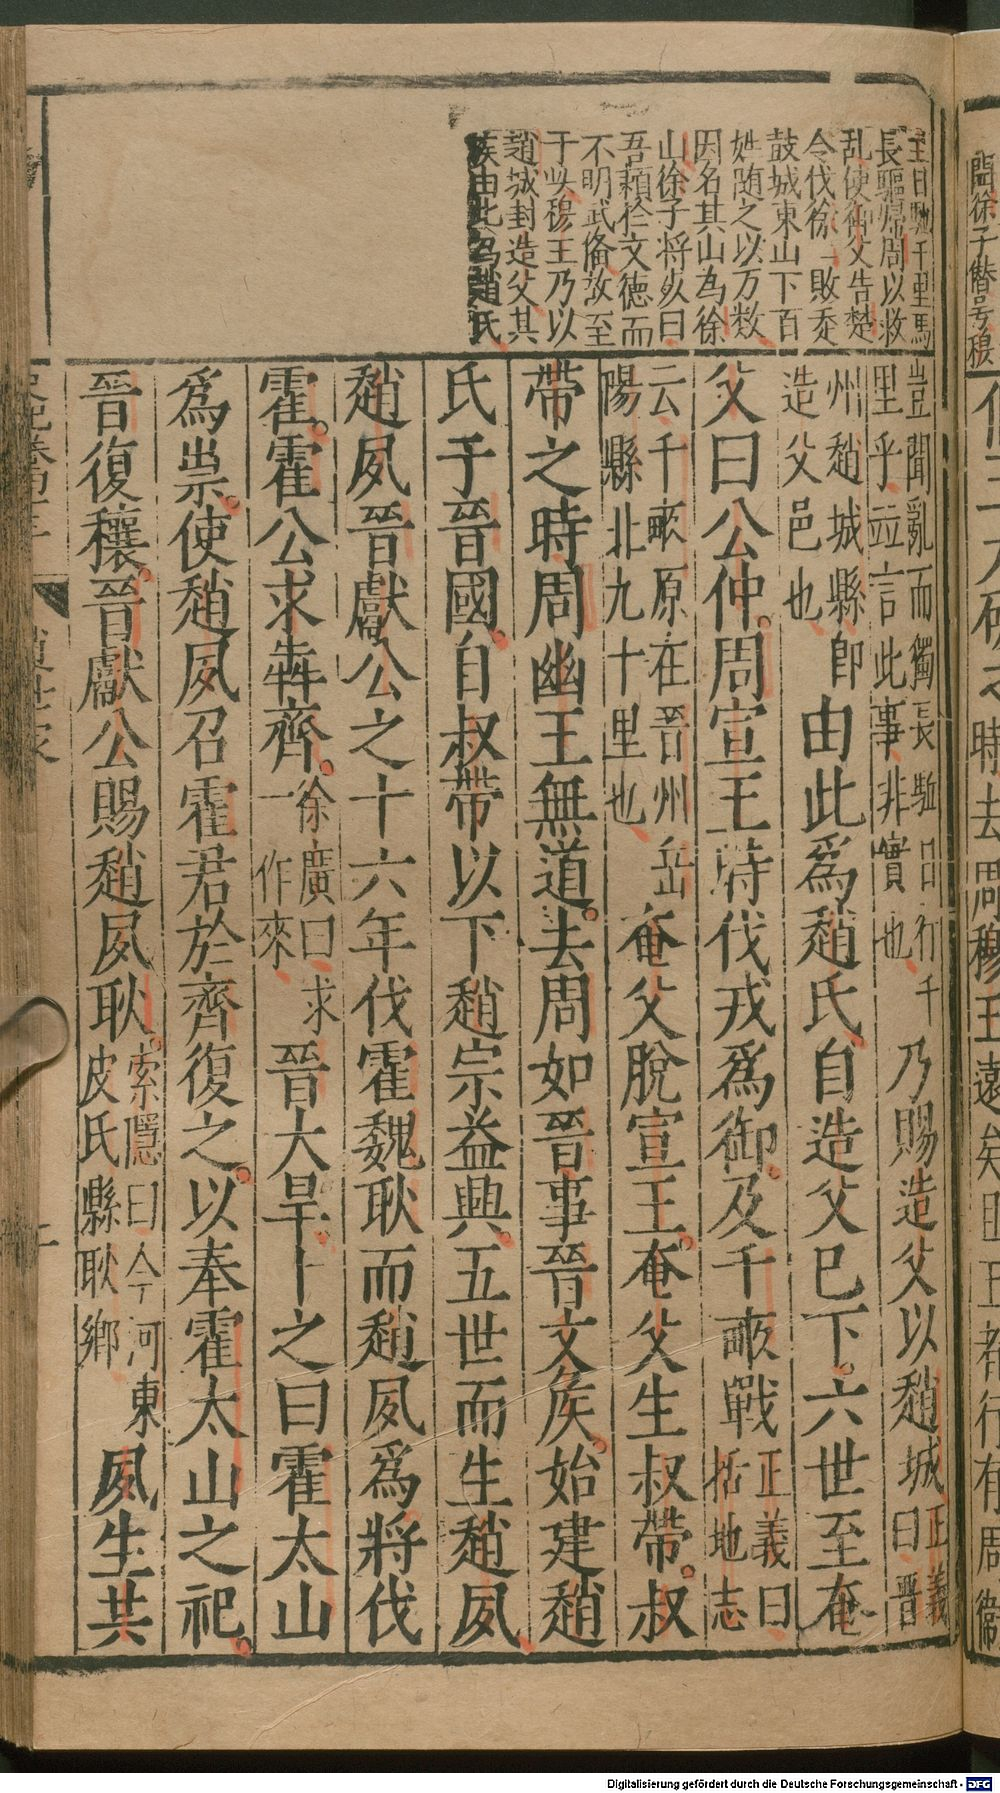 主日馳千里馬
長驅歸周以救
乱使御父告楚
令伐徐一敗奔
鼓城東山下百
姓随之以万数
因名其山为徐
山徐子将死曰
吾頼於文德而
不明武俻故至
于此穆王乃以
趙城封造父其
族由此为趙氏
豈聞亂而獨長驅日行千
里乎並言此事非實也
乃賜造父以趙城
正義
曰晋
州趙城縣卽
造父邑也
由此爲趙氏自造父已下六世至奄
父曰公仲周宣王時伐戎爲御及千畝戰
正義曰
括地志
云千畝原在晉州岳
陽縣北九十里也
奄父脫宣王奄父生叔帶叔
帶之時周幽王無道去周如晉事晉文侯始建趙
氏于晉國自叔帶以下趙宗益興五世而生趙夙
趙夙晉獻公之十六年伐霍魏耿而趙夙爲將伐
霍霍公求犇齊
徐廣曰求
一作來
晉大旱卜之曰霍太山
爲祟使趙夙召霍君於齊復之以奉霍太山之祀
晉復穰晉獻公賜趙夙耿
索隱曰今河東
皮氏縣耿鄉
夙生共
Digitalisierung gefördert durch die Deutsche Forschungsgemeinschaft - DFG